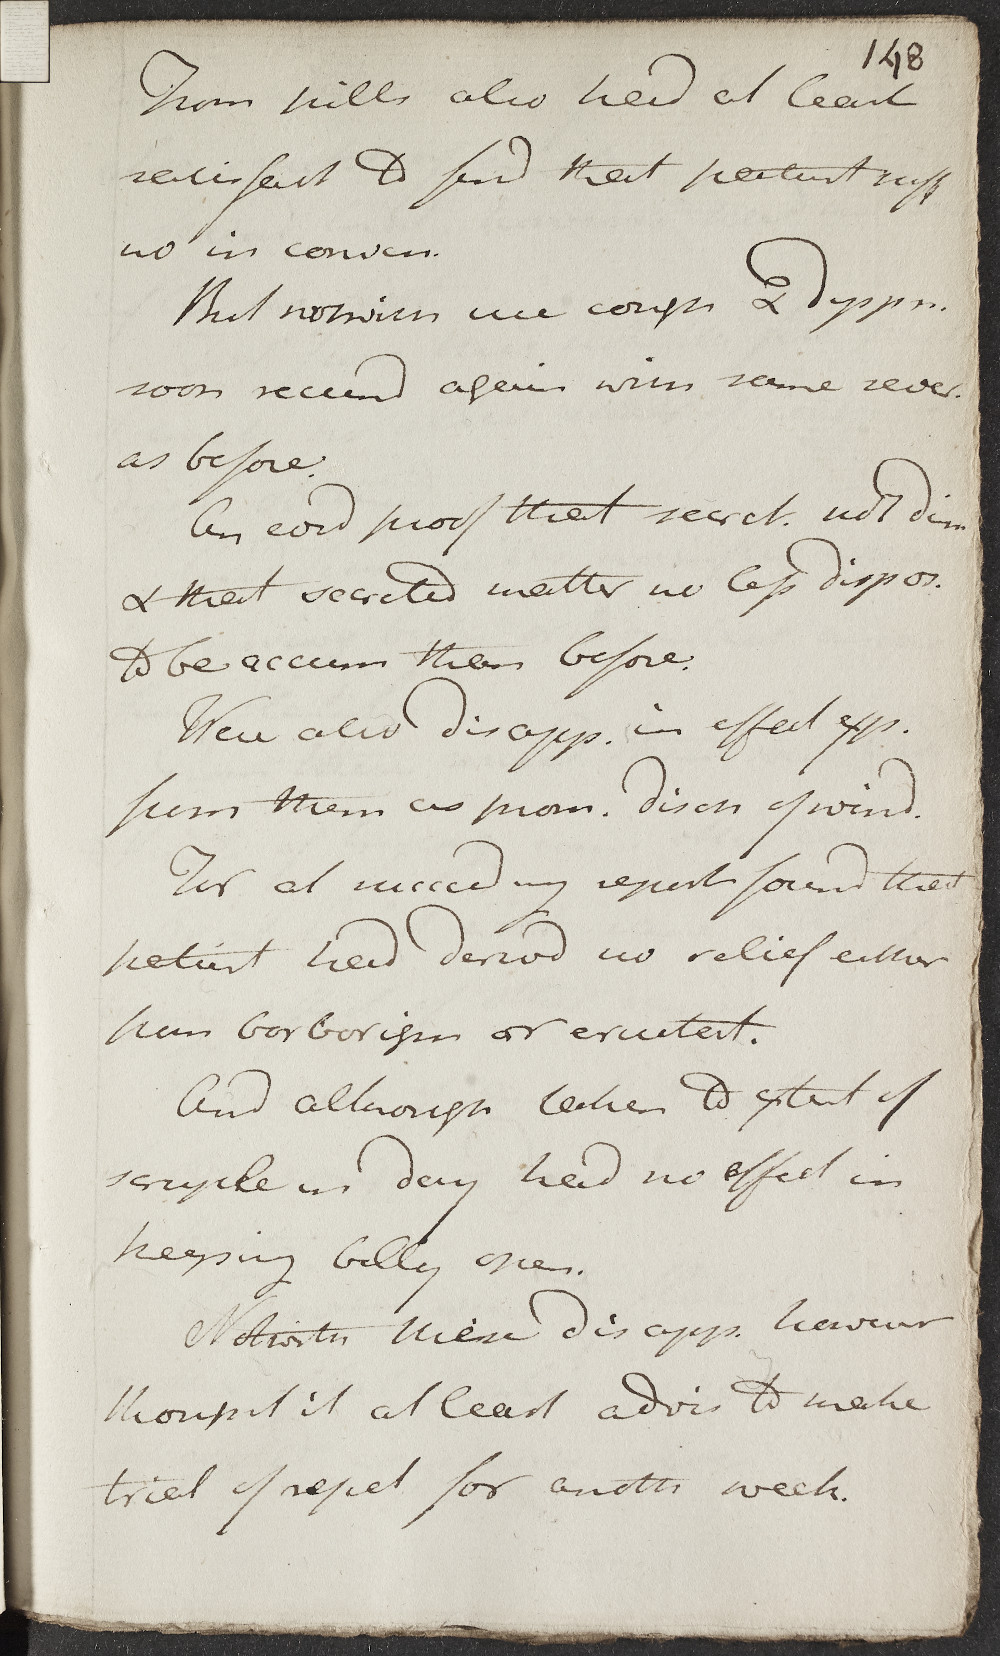 148
From pills also had at least
satisfact to find that patient suff
no in conven.
But notwith use cough & dyspn.
soon recurrd again with same sever.
as before.
An evid proof that secret. not dim
& that secreted matter no less dispos.
to be accum than before.
Were also disapp. in effect exp.
from them as prom. disch of wind.
For at succeeding report found that
patient had derivd no relief either
from borborigm or eructat.
And although taken to extent of
scruple in day had no effect in
keeping belly open.
Notwith these disapp. however
thought it at least advis to make
trial of repet for anoth week.